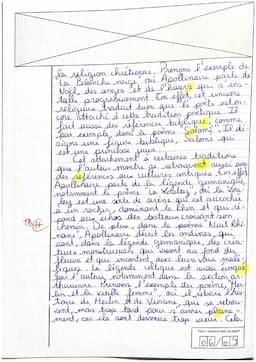 la religion chrétienne. Prenons l'exemple de
"La blanche neige" où Apollinaire parle de
Noël, des anges et de l'hivers qui s'ins-
talle progressivement. En effet, cet univers
religieux traduit bien que le poète est en-
core attaché à cette tradition poétique. Il
fait aussi des références biblique, comme
par exemple dans le poème "Salomé". Il dé-
signe une figure biblique, Salomé qui
est une princesse juive.
Cet attachement à certaines traditions
que l'auteur montre se retrouvent aussi avec
des références aux cultures antiques. En effet
Apollinaire parle de la légende germanique,
notamment le poème "La Loreley", où la Lore-
ley est une sorte de sirène qui est accroché
à un rocher, dominant le Rhin et qui ré-
pond aux échos des bateaux croisant son
chemin. De plus, dans le poème "Nuit rhé-
nane", Apollinaire décrit les ondines, qui
sont, dans la légende germanique, des créa-
tures monstrueuses qui vivent au fond du
fleuve et qui incantent, avec leurs voix malé-
fiques. La légende celtique est aussi évoqué
par l'auteur, notamment dans la section ar-
thurienne. Prenons l'exemple du poème, "Mer-
lin et la vieille femme", où il retrace l'his-
toire de Merlin et de Viviane, qui se retrou-
vent, mais trop tard pour s'aimer pleine-
ment, car ils sont devenus trop vieux. Cela
TB